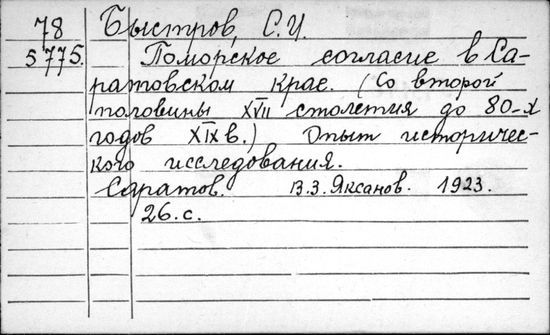 78 Быстров, С.И.
5775. Поморское согласие в Са-
ратовском крае. (Со второй
половины XVII столетия до 80-х
годов XIX в.) Опыт историчес-
кого исследования.
Саратов. В.З. Яксанов. 1923.
26. с.